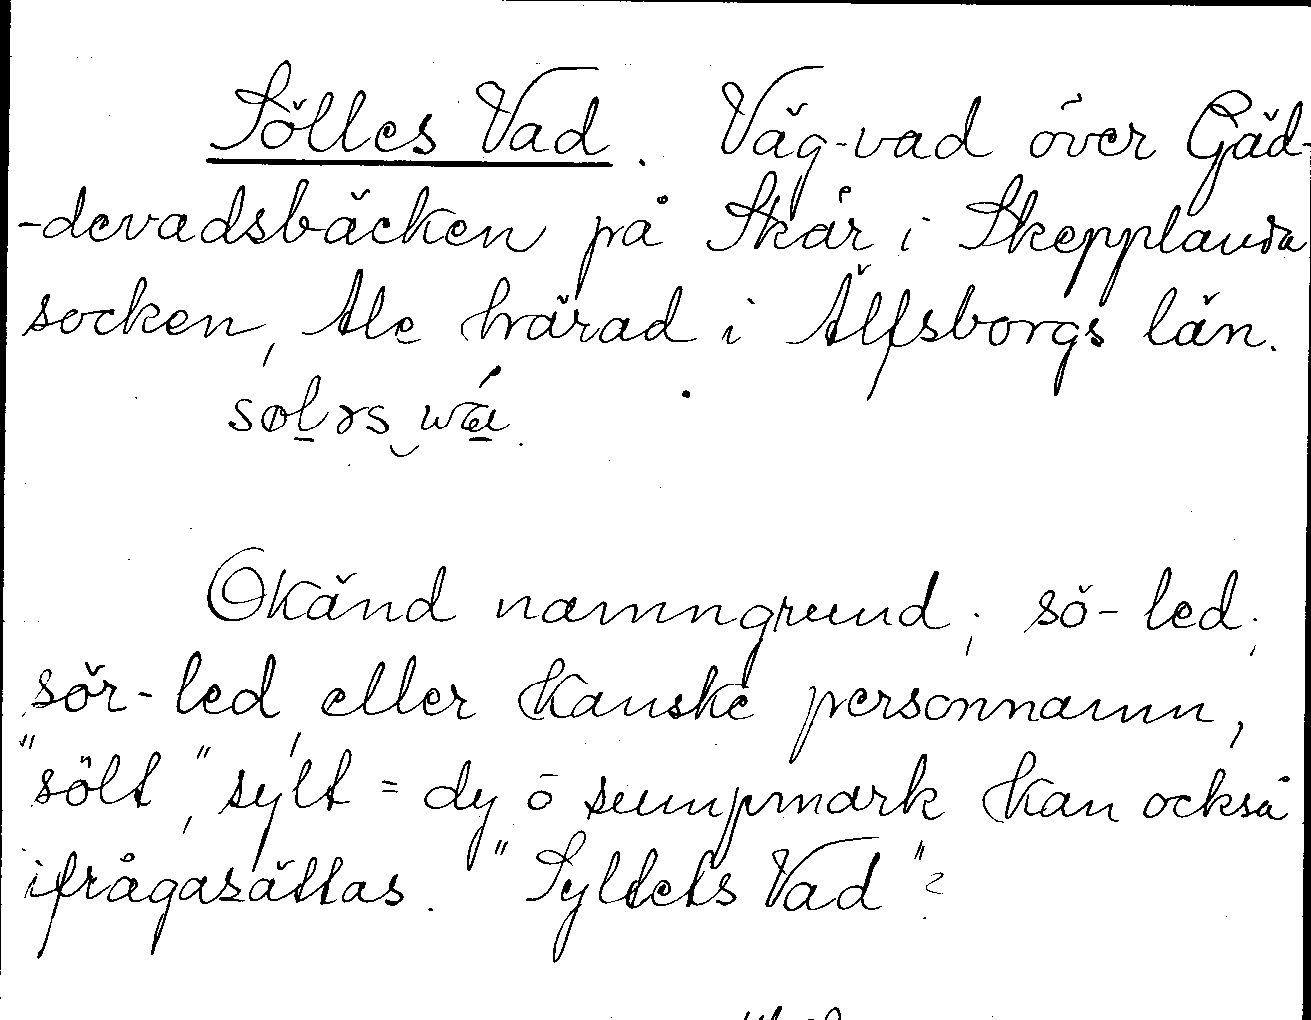 Sölles Vad. Väg-vad över Gäd-
-devadsbäcken på Skår i Skepplanda
socken, Ale härad i Älfsborgs län.
Okänd namngrund; sö-led;
sör-led, eller kanske personnamn,
"sölt," sylt = dy o sumpmark kan också
ifrågasättas. "Syltets Vad"?